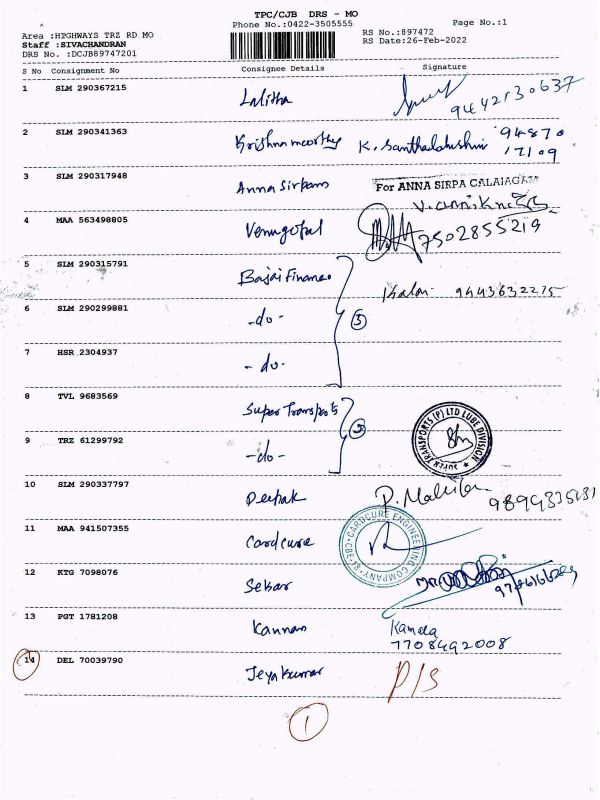 TPC/CJB DRS - MO
Phone No.:0422-3505555
Page No.:1
Area :HIGHWAYS TRZ RD MO
Staff :SIVACHANDRAN
DRS No. :DCJB89747201
RS No.:897472
RS Date:26-Feb-2022
S No Consignment No Consignee Details Signature
1 SLM 290367215 Lalitha 9442130637
2 SLM 290341363 Krishnamoorthy K. Santhalakshmi 94870
17109
3 SLM 290317948 Anna Sirpam For ANNA SIRPA CALAIAGAM
4 MAA 563498805 Venugopal 7502855219
5 SLM 290315791 Bajaj Finance Kalai 9443632275
6 SLM 290299881 -do- 3
7 HSR 2304937 -do-
8 TVL 9683569 Super Transports 2
9 TRZ 61299792 -do-
SUPER TRANSPORTS (P) LTD LUBE DIVISION
10 SLM 290337797 Deepak
11 MAA 941507355 Cardcure
CARDCURE ENGINEERING COMPANY CBE-18
12 KTG 7098076 Sekar
13 PGT 1781208 Kannan Kamala
7708492008
14 DEL 70039790 Jeyakumar P/S
1